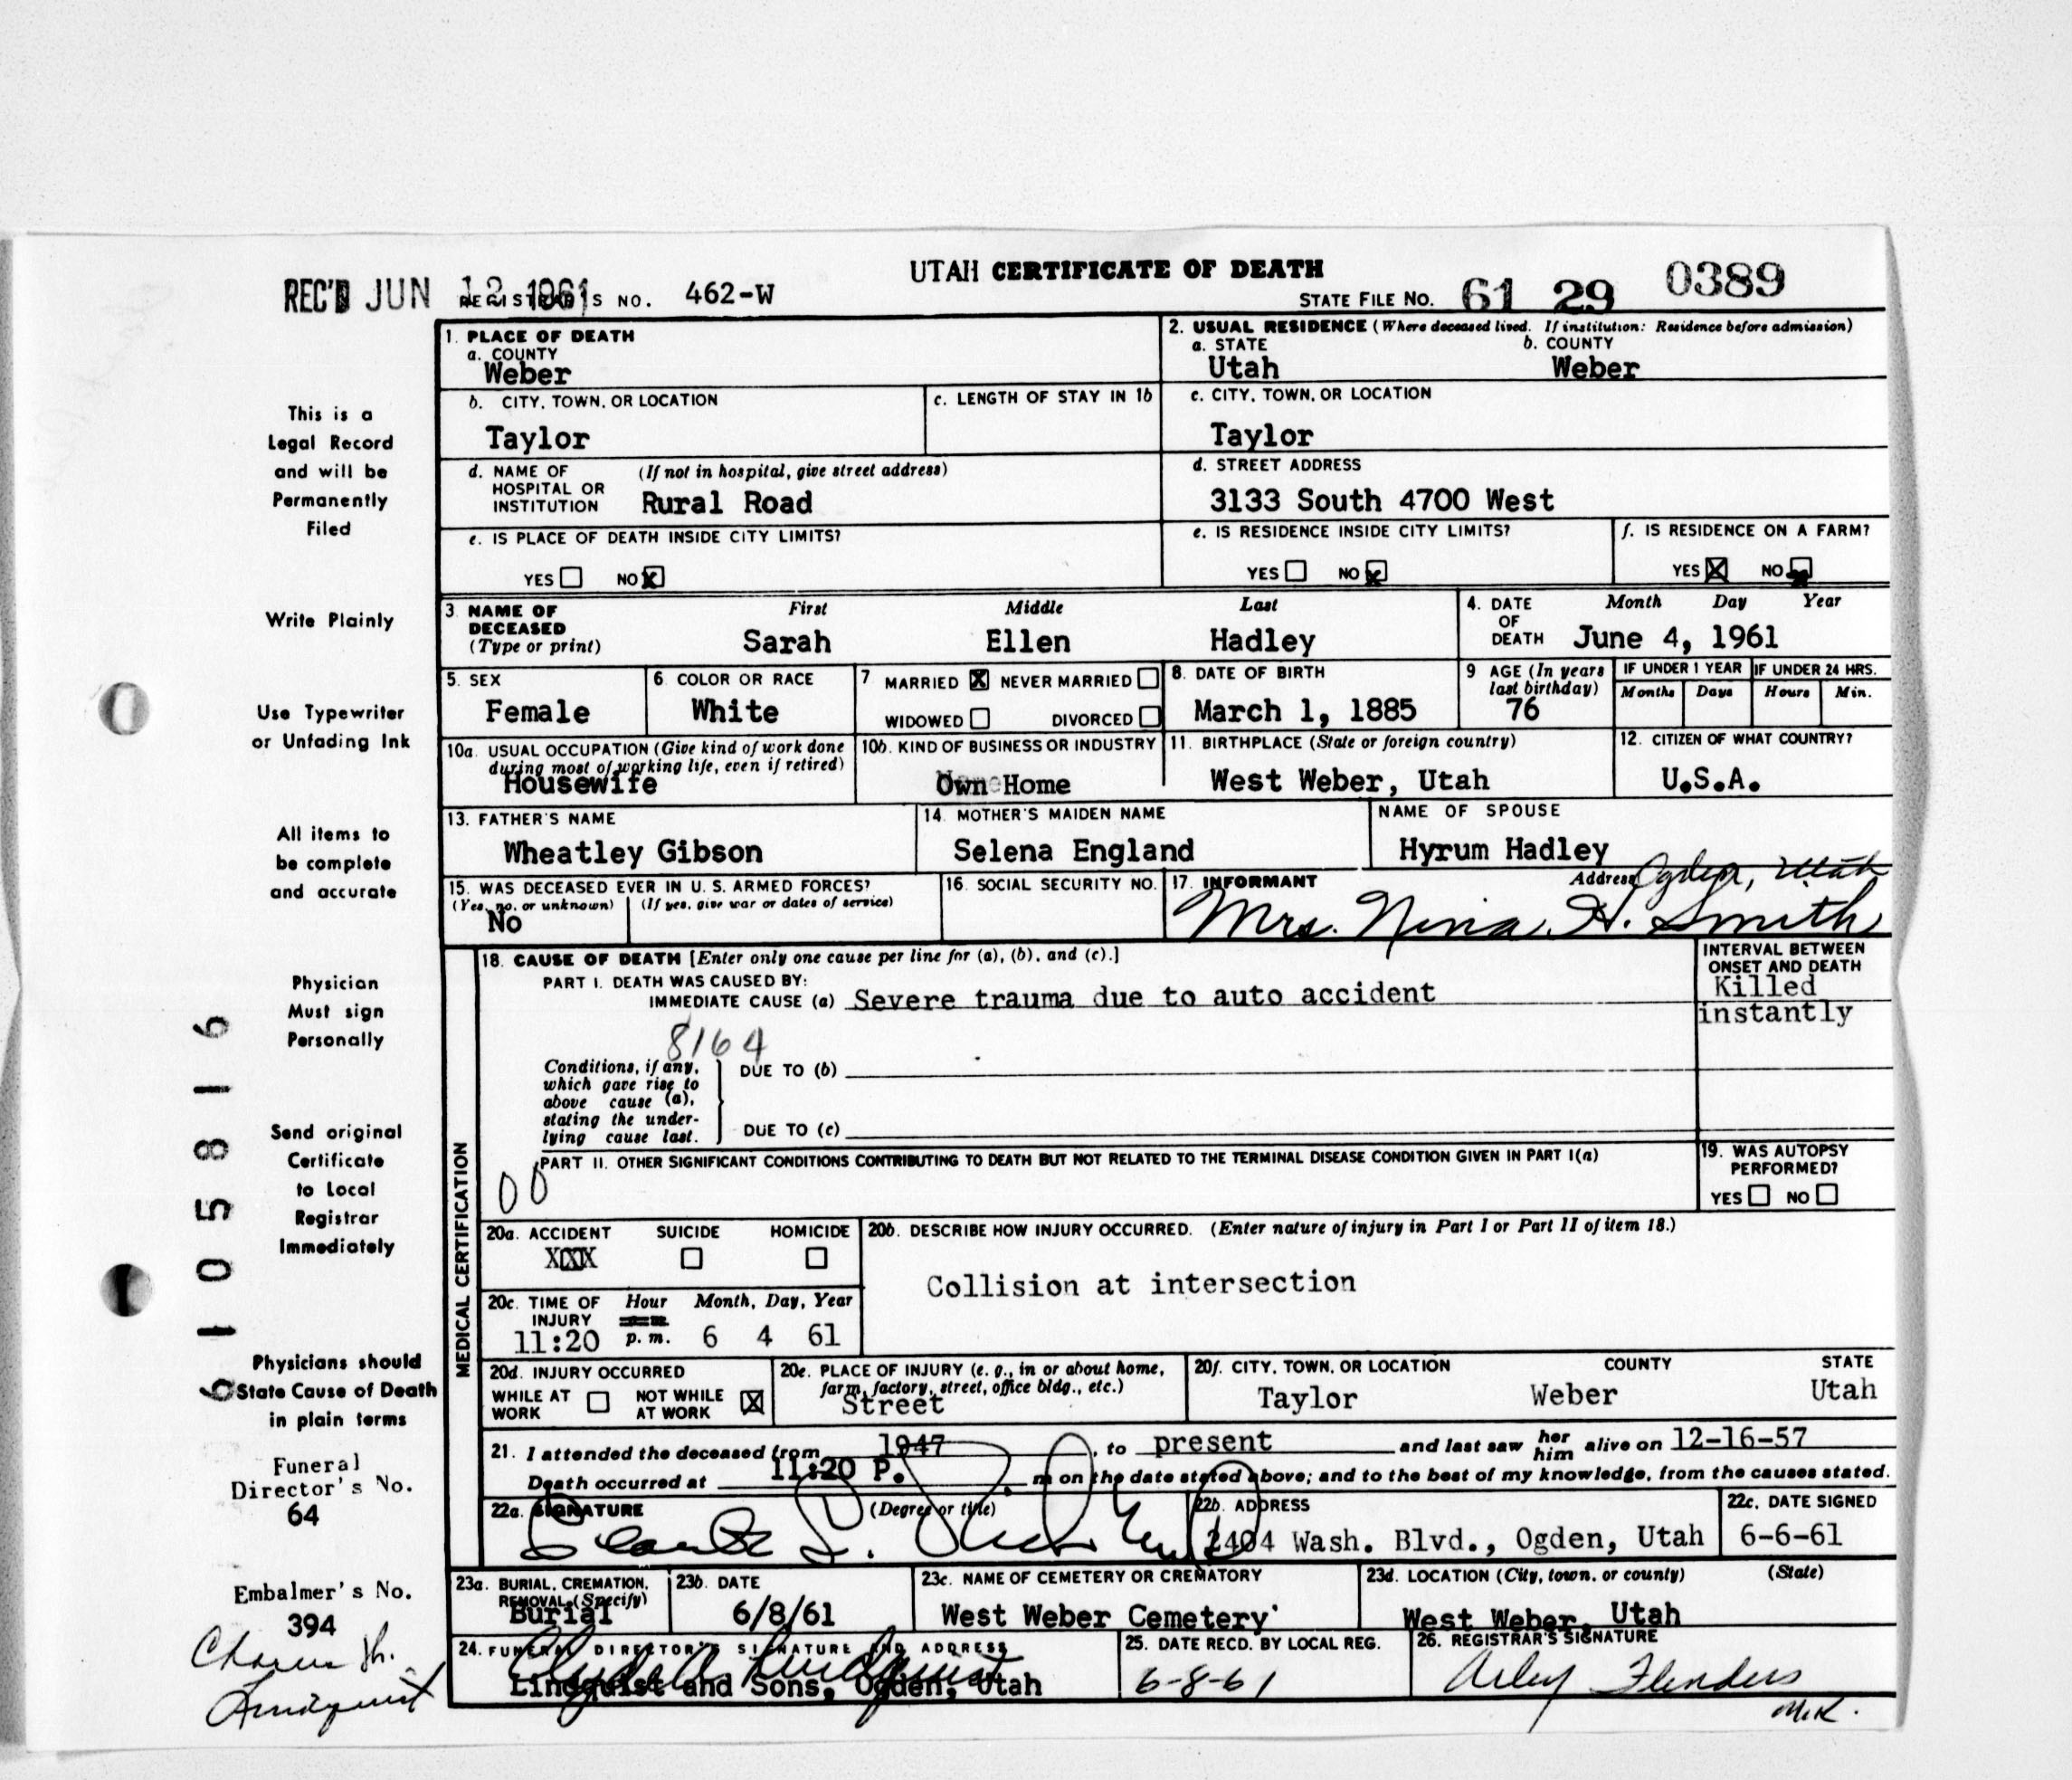 UTAH CERTIFICATE OF DEATH
REC'D JUN 12 1961 REGISTRAR'S NO. 462-W
STATE FILE NO. 61 29 0389
1. PLACE OF DEATH
a. COUNTY
Weber
2. USUAL RESIDENCE (Where deceased lived. If institution: Residence before admission)
a. STATE b. COUNTY
Utah Weber
b. CITY, TOWN, OR LOCATION c. LENGTH OF STAY IN 1b
Taylor
c. CITY, TOWN, OR LOCATION
Taylor
d. NAME OF HOSPITAL OR INSTITUTION (If not in hospital, give street address)
Rural Road
d. STREET ADDRESS
3133 South 4700 West
e. IS PLACE OF DEATH INSIDE CITY LIMITS?
YES NO X
e. IS RESIDENCE INSIDE CITY LIMITS?
YES NO X
f. IS RESIDENCE ON A FARM?
YES X NO
3. NAME OF DECEASED (Type or print) First Middle Last
Sarah Ellen Hadley
4. DATE OF DEATH Month Day Year
June 4, 1961
5. SEX
Female
6. COLOR OR RACE
White
7 MARRIED X NEVER MARRIED
WIDOWED DIVORCED
8. DATE OF BIRTH
March 1, 1885
9 AGE (In years last birthday)
76
IF UNDER 1 YEAR IF UNDER 24 HRS.
Months Days Hours Min.
10a. USUAL OCCUPATION (Give kind of work done during most of working life, even if retired)
Housewife
10b. KIND OF BUSINESS OR INDUSTRY
Own Home
11. BIRTHPLACE (State or foreign country)
West Weber, Utah
12. CITIZEN OF WHAT COUNTRY?
U.S.A.
13. FATHER'S NAME
Wheatley Gibson
14. MOTHER'S MAIDEN NAME
Selena England
NAME OF SPOUSE
Hyrum Hadley
15. WAS DECEASED EVER IN U. S. ARMED FORCES?
(Yes, no, or unknown) (If yes, give war or dates of service)
No
16. SOCIAL SECURITY NO.
17. INFORMANT Address Ogden, Utah
Mrs. Nina H. Smith
18. CAUSE OF DEATH [Enter only one cause per line for (a), (b), and (c).]
PART I. DEATH WAS CAUSED BY:
IMMEDIATE CAUSE (a) Severe trauma due to auto accident
INTERVAL BETWEEN
ONSET AND DEATH
Killed
instantly
8164
Conditions, if any,
which gave rise to
above cause (a),
stating the under-
lying cause last.
DUE TO (b)
DUE TO (c)
PART II. OTHER SIGNIFICANT CONDITIONS CONTRIBUTING TO DEATH BUT NOT RELATED TO THE TERMINAL DISEASE CONDITION GIVEN IN PART I(a)
00
19. WAS AUTOPSY
PERFORMED?
YES NO
MEDICAL CERTIFICATION
20a. ACCIDENT SUICIDE HOMICIDE
XXX
20b. DESCRIBE HOW INJURY OCCURRED. (Enter nature of injury in Part I or Part II of item 18.)
Collision at intersection
20c. TIME OF INJURY Hour Month, Day, Year
11:20 p. m. 6 4 61
20d. INJURY OCCURRED
WHILE AT WORK NOT WHILE AT WORK X
20e. PLACE OF INJURY (e. g., in or about home, farm, factory, street, office bldg., etc.)
Street
20f. CITY, TOWN, OR LOCATION COUNTY STATE
Taylor Weber Utah
21. I attended the deceased from 1947, to present and last saw her him alive on 12-16-57
Death occurred at 11:20 P. m on the date stated above; and to the best of my knowledge, from the causes stated.
22a. SIGNATURE (Degree or title)
22b. ADDRESS
2404 Wash. Blvd., Ogden, Utah
22c. DATE SIGNED
6-6-61
23a. BURIAL, CREMATION, REMOVAL (Specify)
Burial
23b. DATE
6/8/61
23c. NAME OF CEMETERY OR CREMATORY
West Weber Cemetery
23d. LOCATION (City, town, or county) (State)
West Weber, Utah
24. FUNERAL DIRECTOR'S SIGNATURE AND ADDRESS
Lindquist and Sons, Ogden, Utah
25. DATE RECD. BY LOCAL REG.
6-8-61
26. REGISTRAR'S SIGNATURE
Flenders
This is a
Legal Record
and will be
Permanently
Filed
Write Plainly
Use Typewriter
or Unfading Ink
All items to
be complete
and accurate
Physician
Must sign
Personally
Send original
Certificate
to Local
Registrar
Immediately
Physicians should
State Cause of Death
in plain terms
Funeral
Director's No.
64
Embalmer's No.
394
Lindquist
6 105816